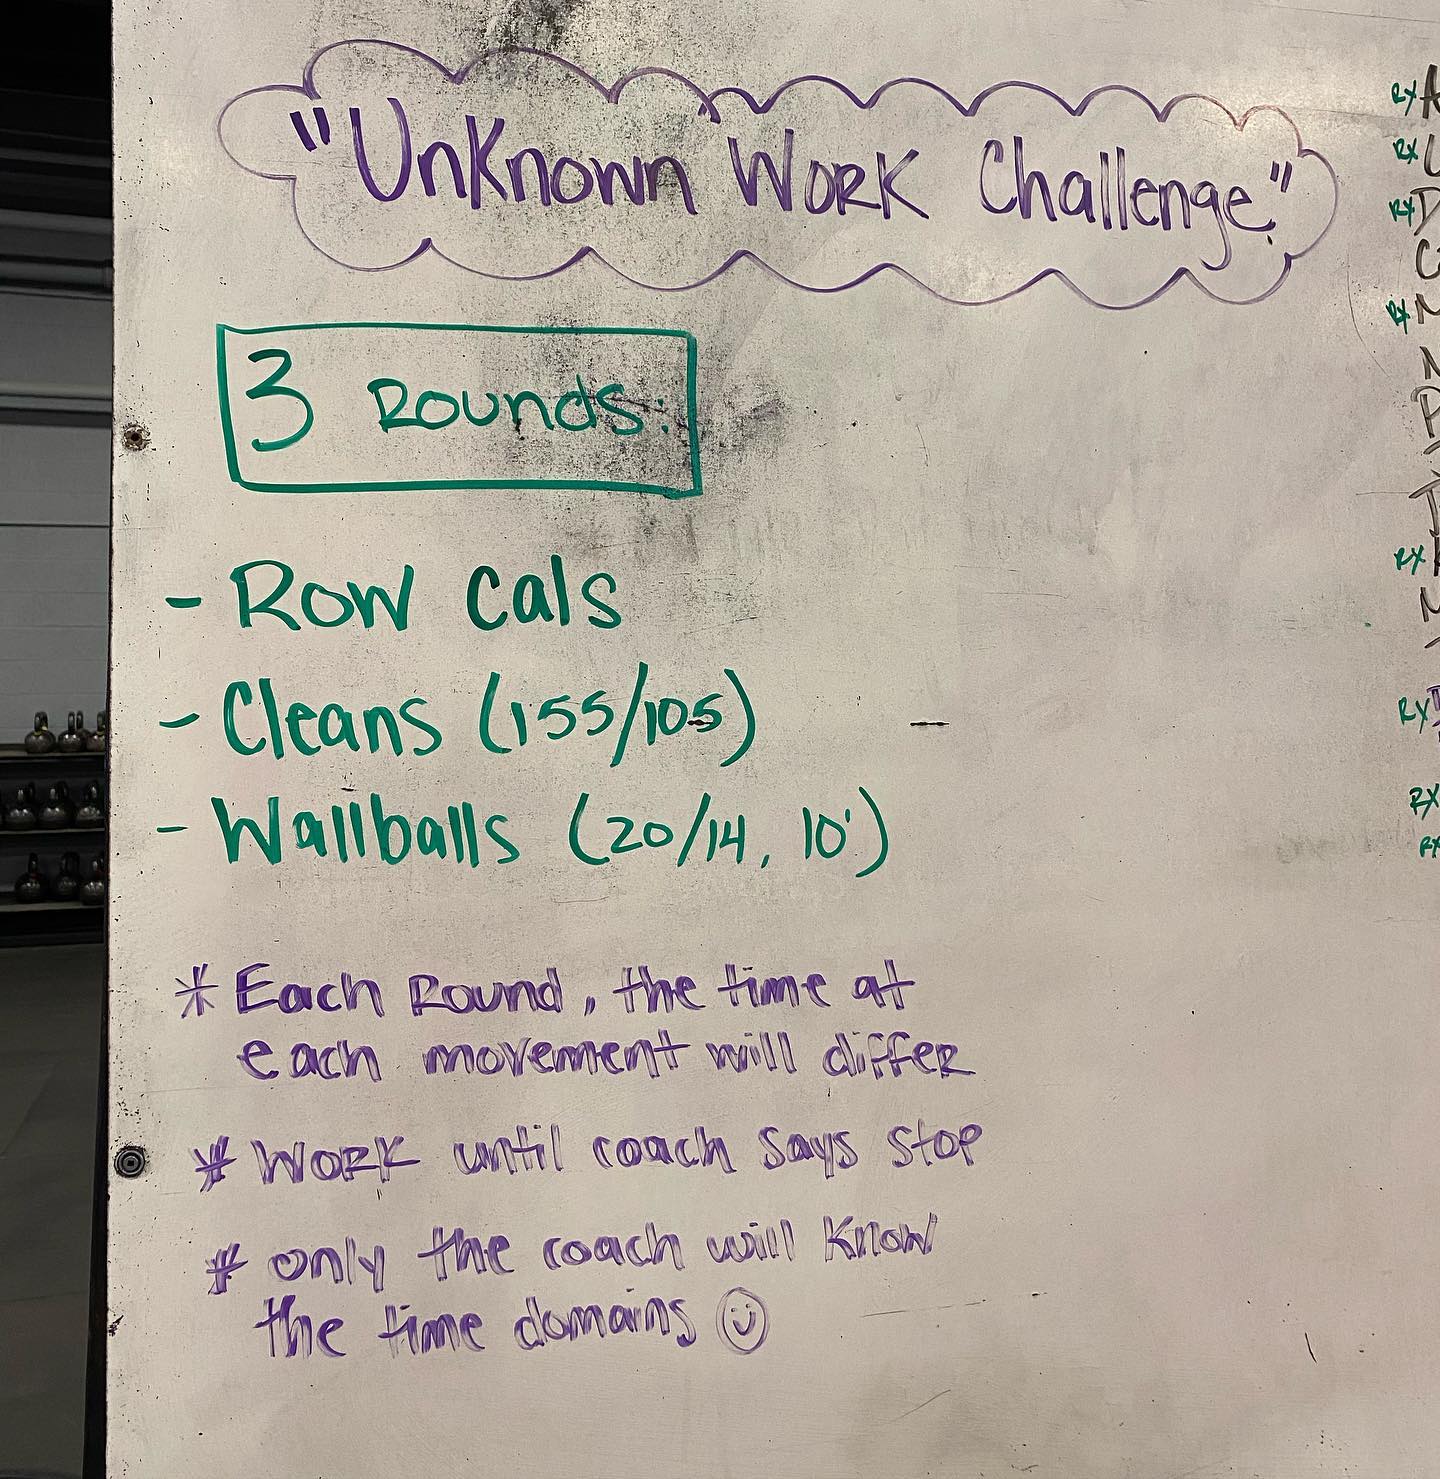 "Unknown Work Challenge"
3 Rounds:
- Row Cals
- Cleans (155/105)
- Wallballs (20/14, 10')
* Each Round, the time at
each movement will differ
* Work until coach says stop
* only the coach will know
the time domains ☺
RX
RX
RX
RX
RX
RX
RX
RX